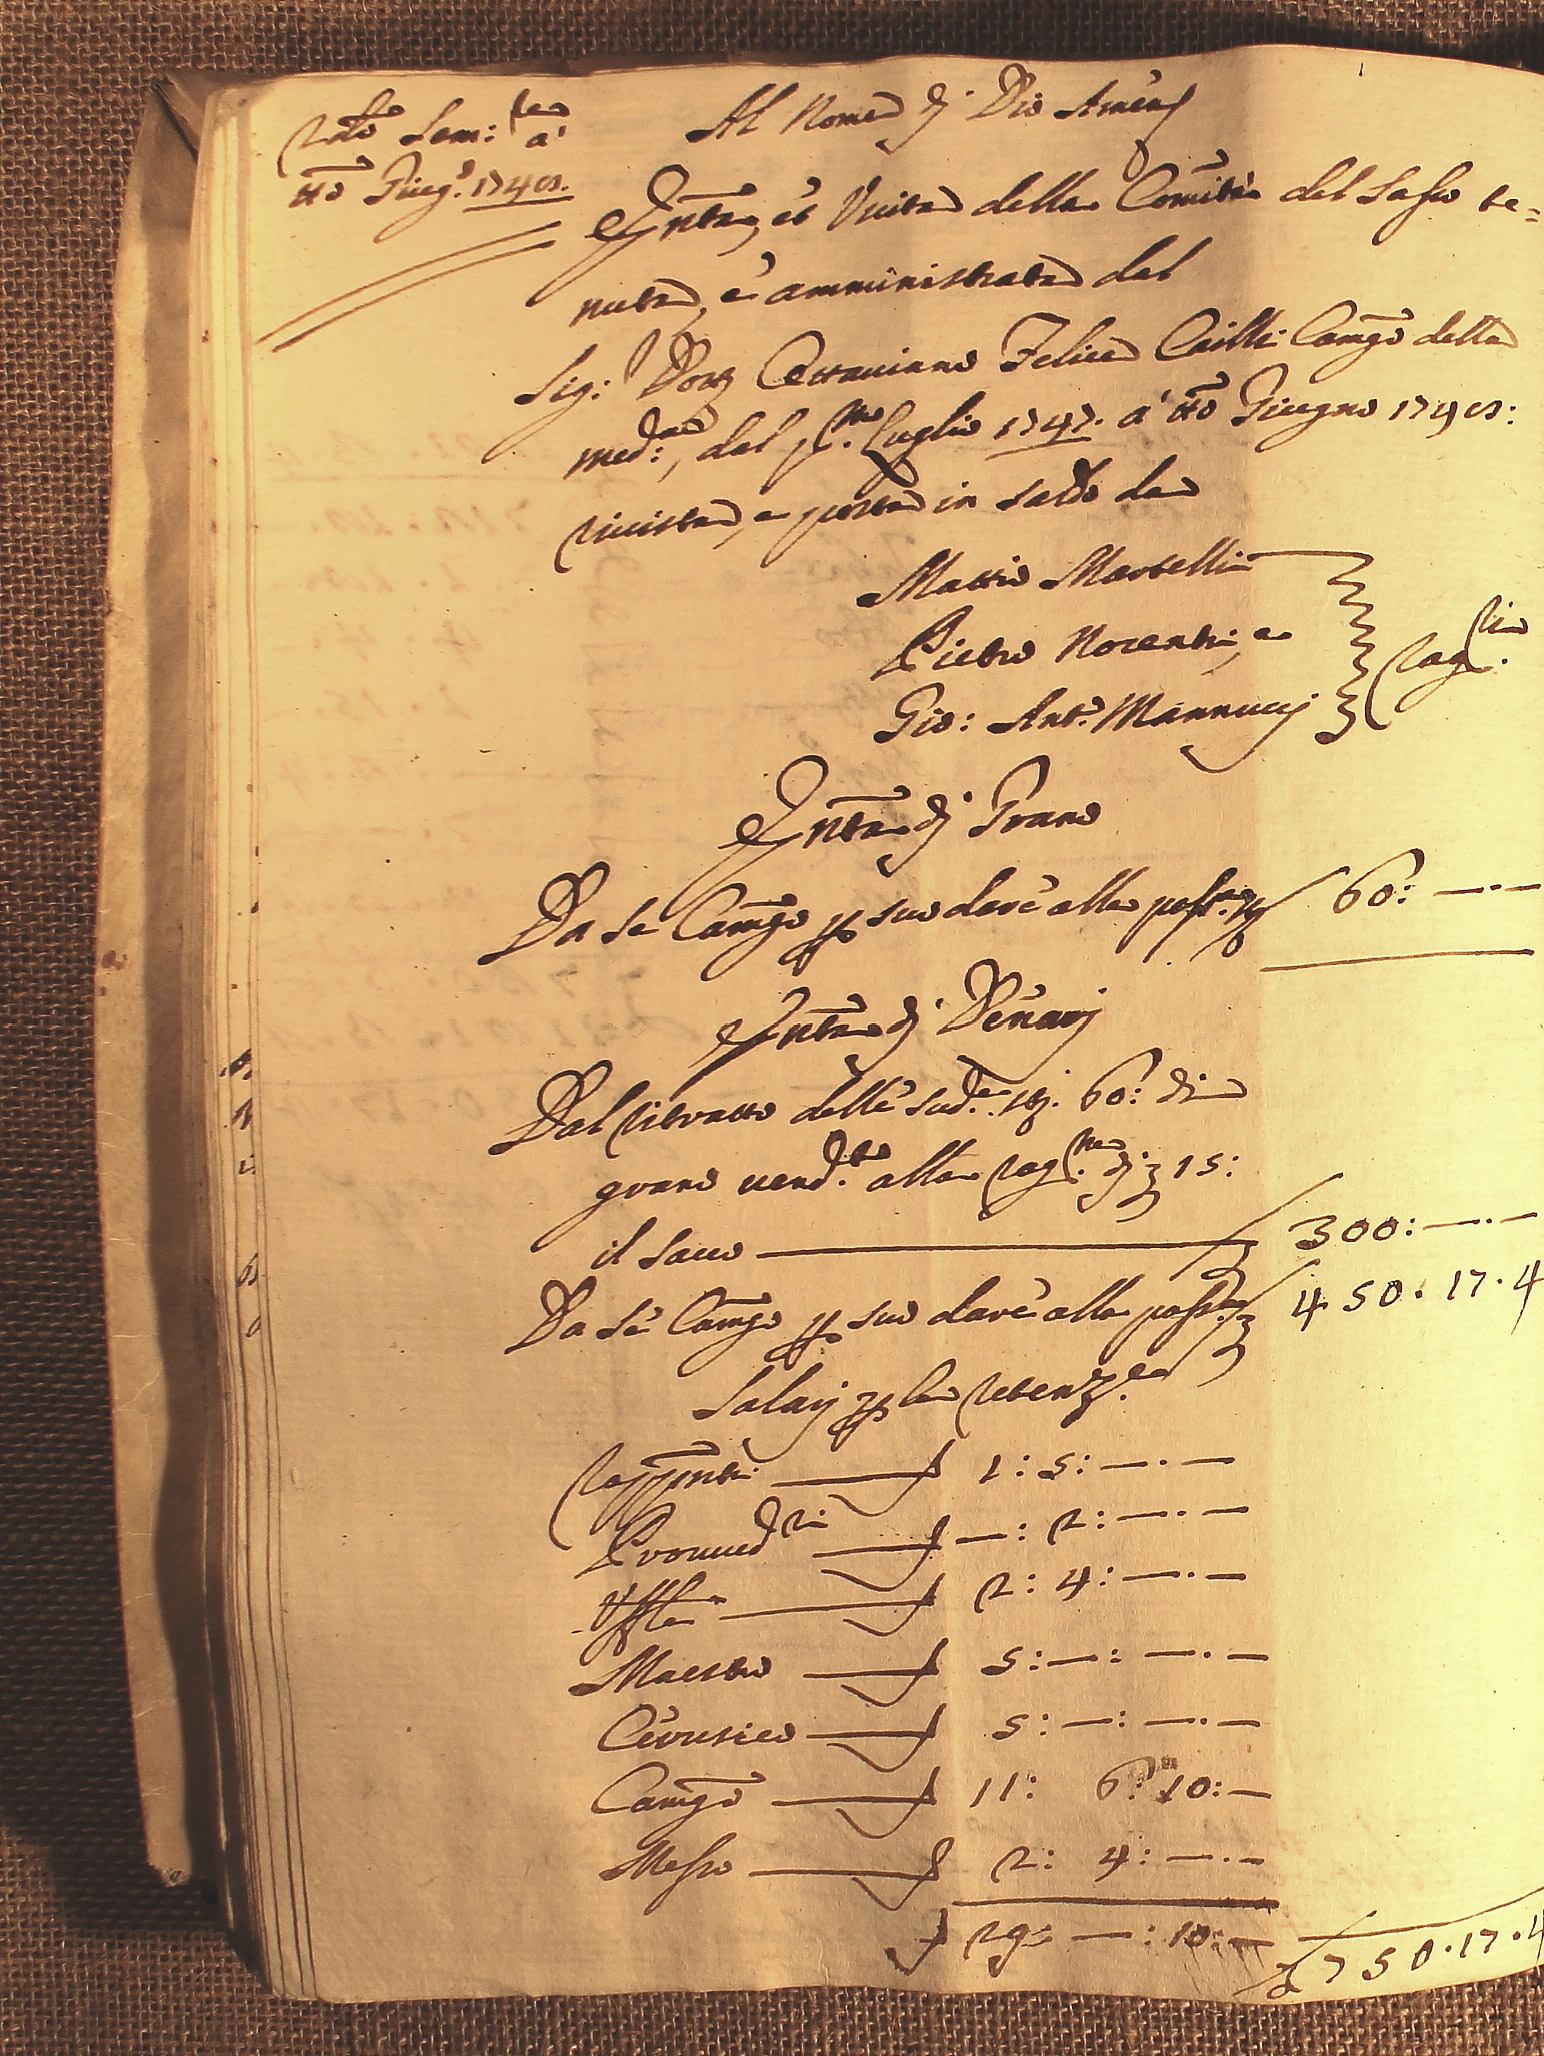 Rdo Sem: tre a'
tto Giug.o 1748.
Al Nome di Dio Amen
Entra, et Uscita della Comità del Sasso te=
nuta, e amministrata dal
Sig: Dott Ottaviano Felice Camgo della
med:ma, dal p.mo Luglio 1747. a' tto Giugno 1748:
rivista, e posta in saldo da
Matteo Martellini
Pietro Nocenti, e
Gio: Ant.o Mannucci
Rag.ri
Entra di Grano
Da Se Camgo p suo dare alla post.a 60: —·—
Entra di Denari
Dal ritratto delle sud.e 60: di
grano vend.to alla rag.ne di 15:
il sacco — 300: —·—
Da Se Camgo p suo dare alla posta 450·17·4
Salarj p la
Rappnti — 1: 5: —·—
Provved.ri — —: 2: —·—
Uffle — 2: 4: —·—
Maestro — 5: —: —·—
Cerusico — 5: —: —·—
Camgo — 11: 6: 10: —
Messo — 2: 4: —·—
29: —: 10: —
750·17·4